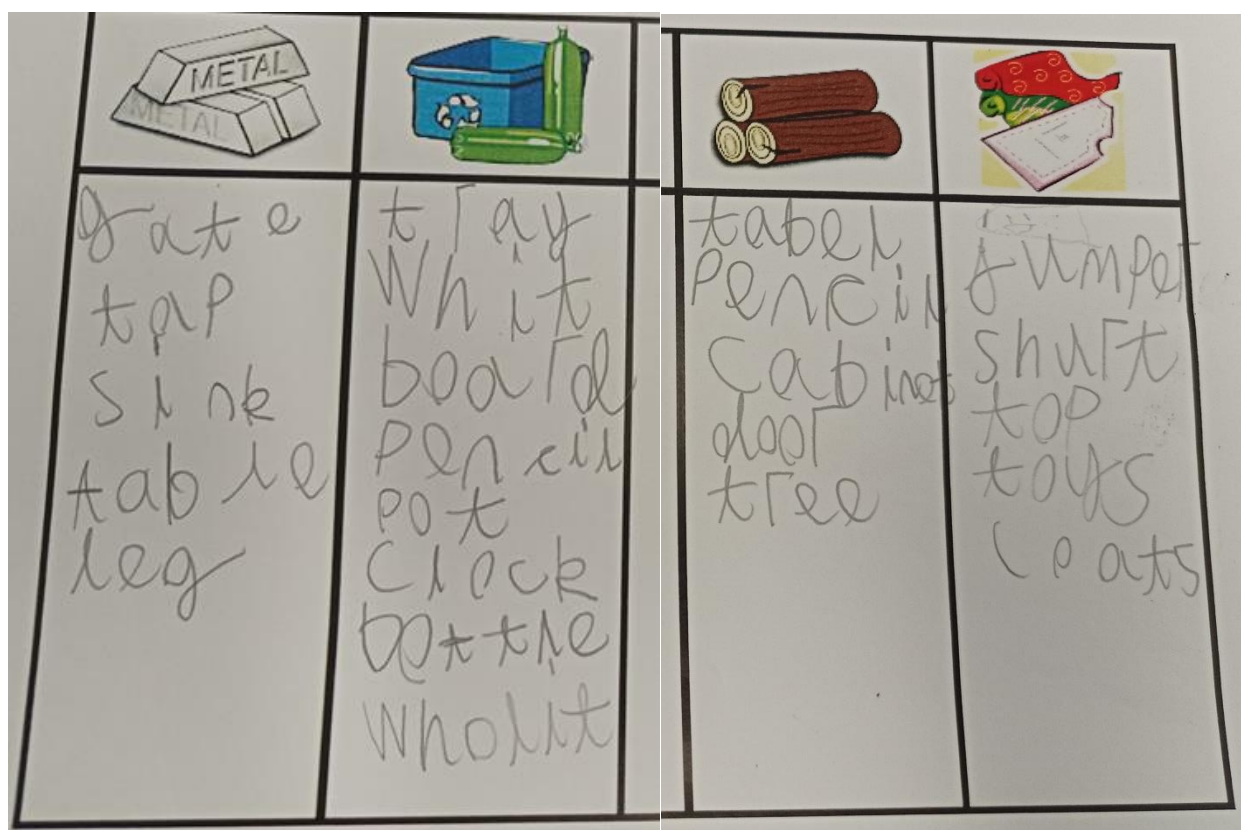 METAL
METAL
gate
tap
sink
table
leg
tray
Whit
board
pencil
pot
clock
bottle
wholit
tabel
pencil
cabinet
door
tree
jumper
shurt
top
toys
coats